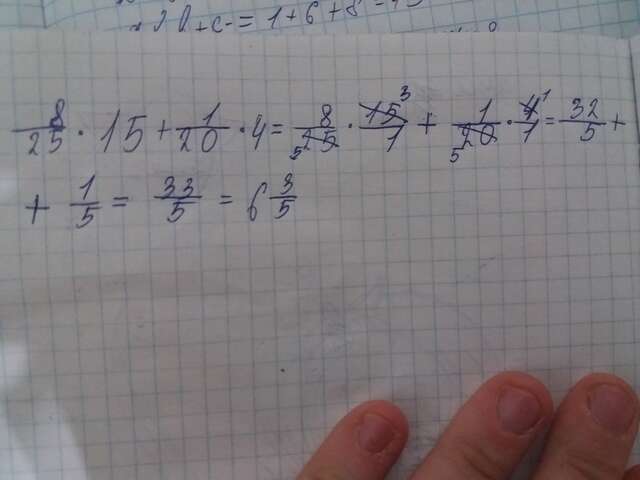 + c = 1 + 6 + 8 =
8/25 · 15 + 1/20 · 4 = 8/25 5 · 15 3/1 + 1/20 5 · 4 1/1 = 32/5 +
+ 1/5 = 33/5 = 6 3/5